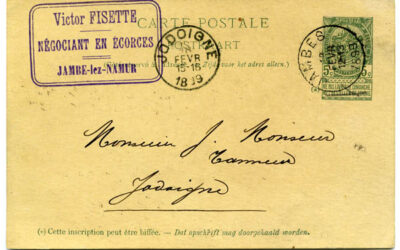 Victor FISETTE
NÉGOCIANT EN ÉCORCES
JAMBE-lez-NAMUR
CARTE POSTALE
POSTKAART
(Zijde voor het adres alleen.)
JODOIGNE
FEVR
15-16
1899
JAMBES
FEVR
Monsieur J. Monsieur
Tanneur
Jodoigne
(*) Cette inscription peut être biffée. — Dat opschrift mag doorgehaald worden.